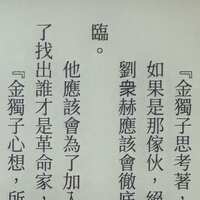 『金獨子思考著，
如果是那傢伙，絕
劉衆赫應該會徹底
臨。
他應該會為了加入
了找出誰才是革命家，
『金獨子心想，所